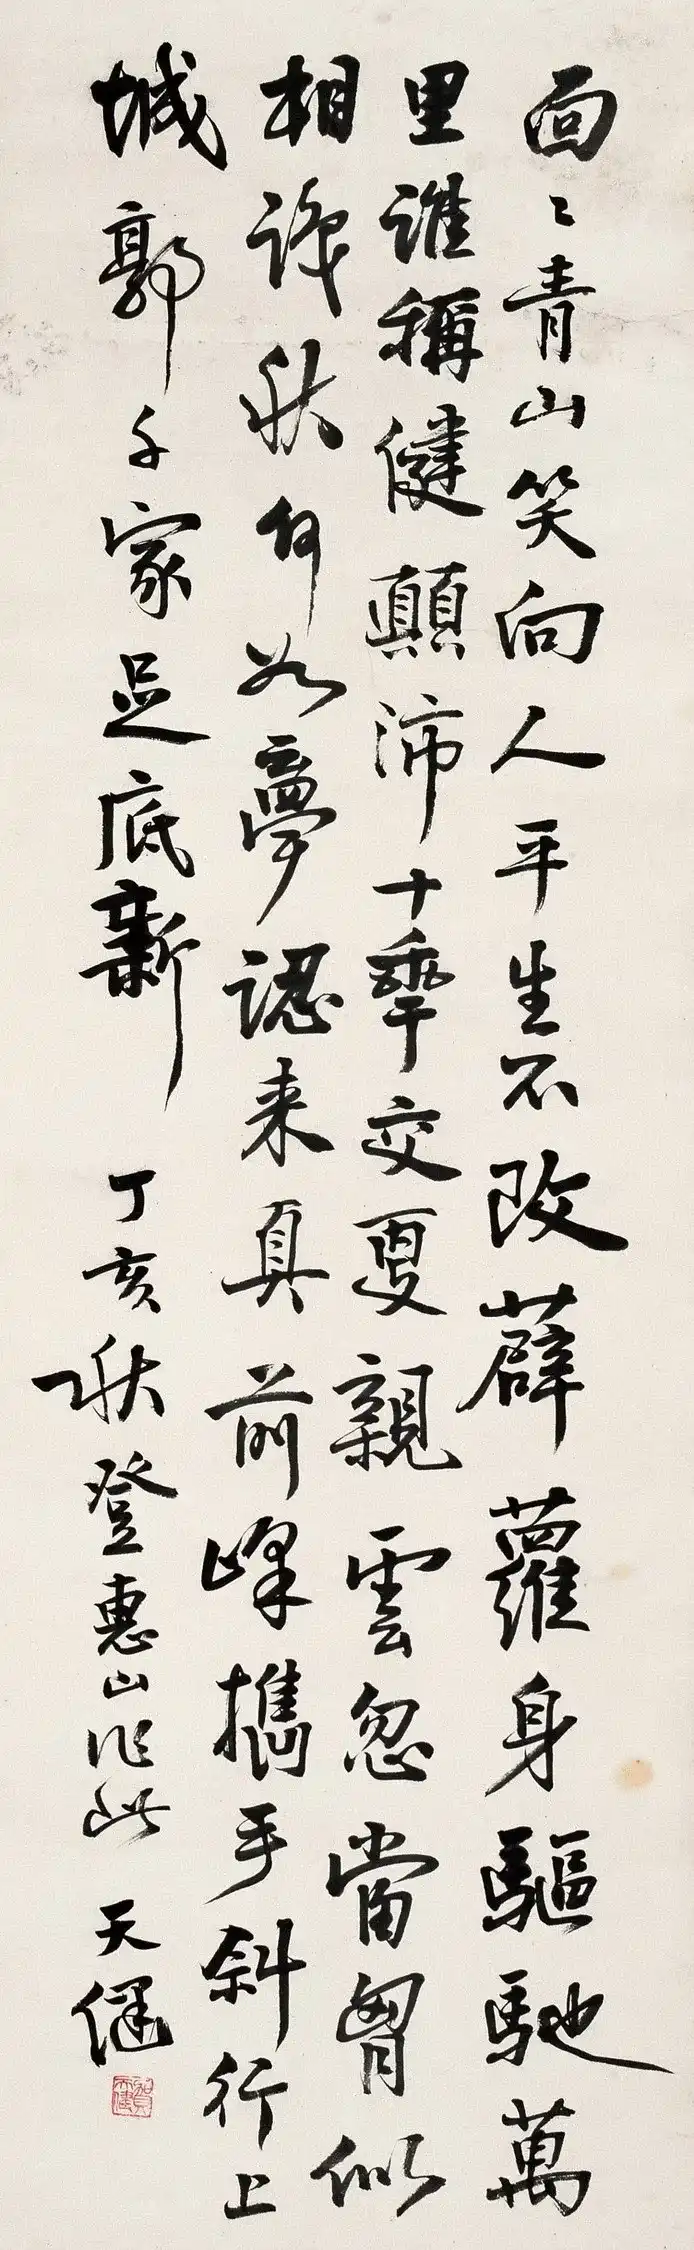 面〻青山笑向人平生不改薜蘿身驅馳萬
里誰稱健顛沛十秊交更親雲忽當胷似
相識秋何如夢認来真前峰攜手斜行上
城郭千家足底新 丁亥秋登惠山作此 天健
賀天健